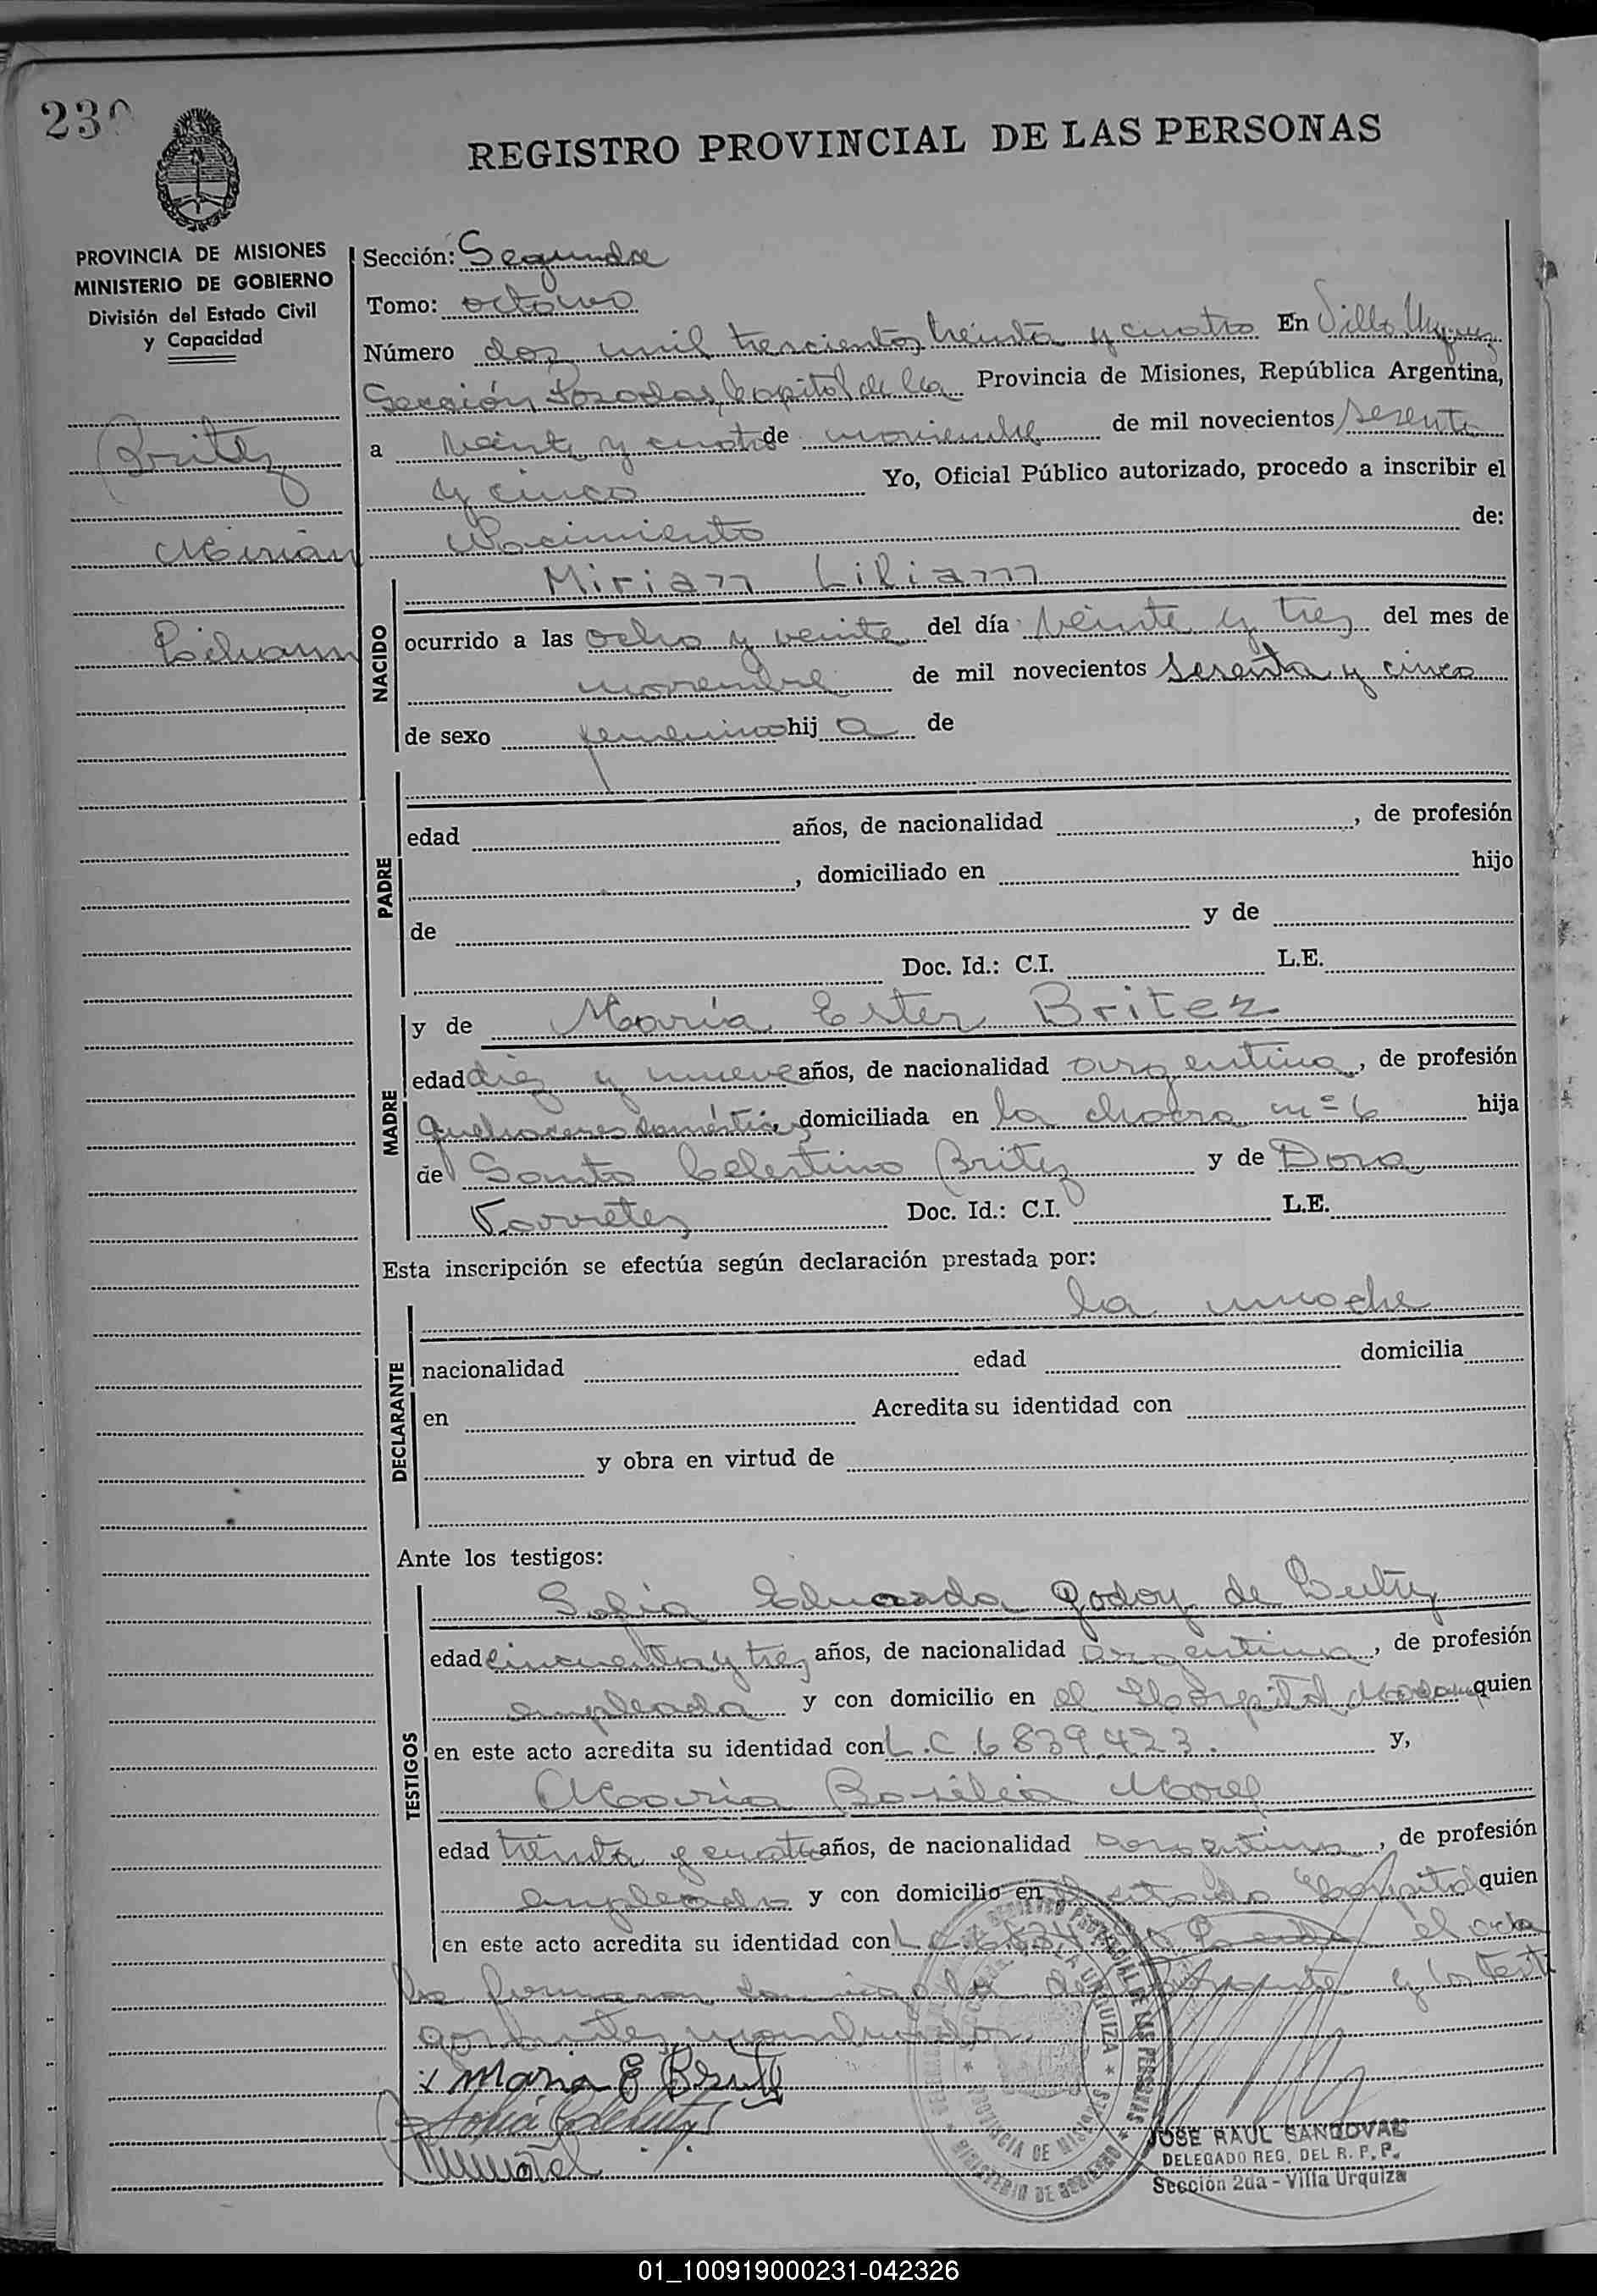 REGISTRO PROVINCIAL DE LAS PERSONAS
PROVINCIA DE MISIONES
MINISTERIO DE GOBIERNO
División del Estado Civil
y Capacidad
Britez
Mirian
Liliam
Sección: Segunda
Tomo: octavo
Número dos mil trescientos treinta y cuatro En Villa Urquiza
Sección Posadas, Capital de la Provincia de Misiones, República Argentina,
a veinte y cuatro de noviembre de mil novecientos sesenta
y cinco Yo, Oficial Público autorizado, procedo a inscribir el
Nacimiento de:
NACIDO
Mirian Liliam
ocurrido a las ocho y veinte del día veinte y tres del mes de
noviembre de mil novecientos sesenta y cinco
de sexo femenino hij a de
PADRE
edad años, de nacionalidad , de profesión
, domiciliado en hijo
de y de
Doc. Id.: C.I. L.E.
MADRE
y de María Ester Britez
edad diez y nueve años, de nacionalidad argentina, de profesión
quehaceres domésticos, domiciliada en la chacra nº 6 hija
de Santo Celestino Britez y de Dora
Torretes Doc. Id.: C.I. L.E.
Esta inscripción se efectúa según declaración prestada por:
DECLARANTE
la madre
nacionalidad edad domicilia
en Acredita su identidad con
y obra en virtud de
Ante los testigos:
TESTIGOS
Sofia Eduarda Godoy de
edad cincuenta y tres años, de nacionalidad argentina, de profesión
empleada y con domicilio en el Hospital quien
en este acto acredita su identidad con L.C 6839.423. y,
Maria Basilia Morel
edad treinta y cuatro años, de nacionalidad argentina, de profesión
empleada y con domicilio en Hospital quien
en este acto acredita su identidad con L C el acta
la firmaron conmigo la y los testi
gos
x Maria E Brítez
JOSE RAUL SANDOVAL
DELEGADO REG. DEL R. P. P.
Sección 2da - Villa Urquiza
01_100919000231-042326